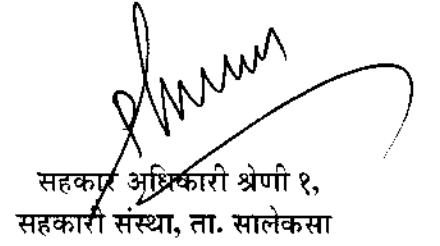 सहकार अधिकारी श्रेणी १,
सहकारी संस्था, ता. सालेकसा